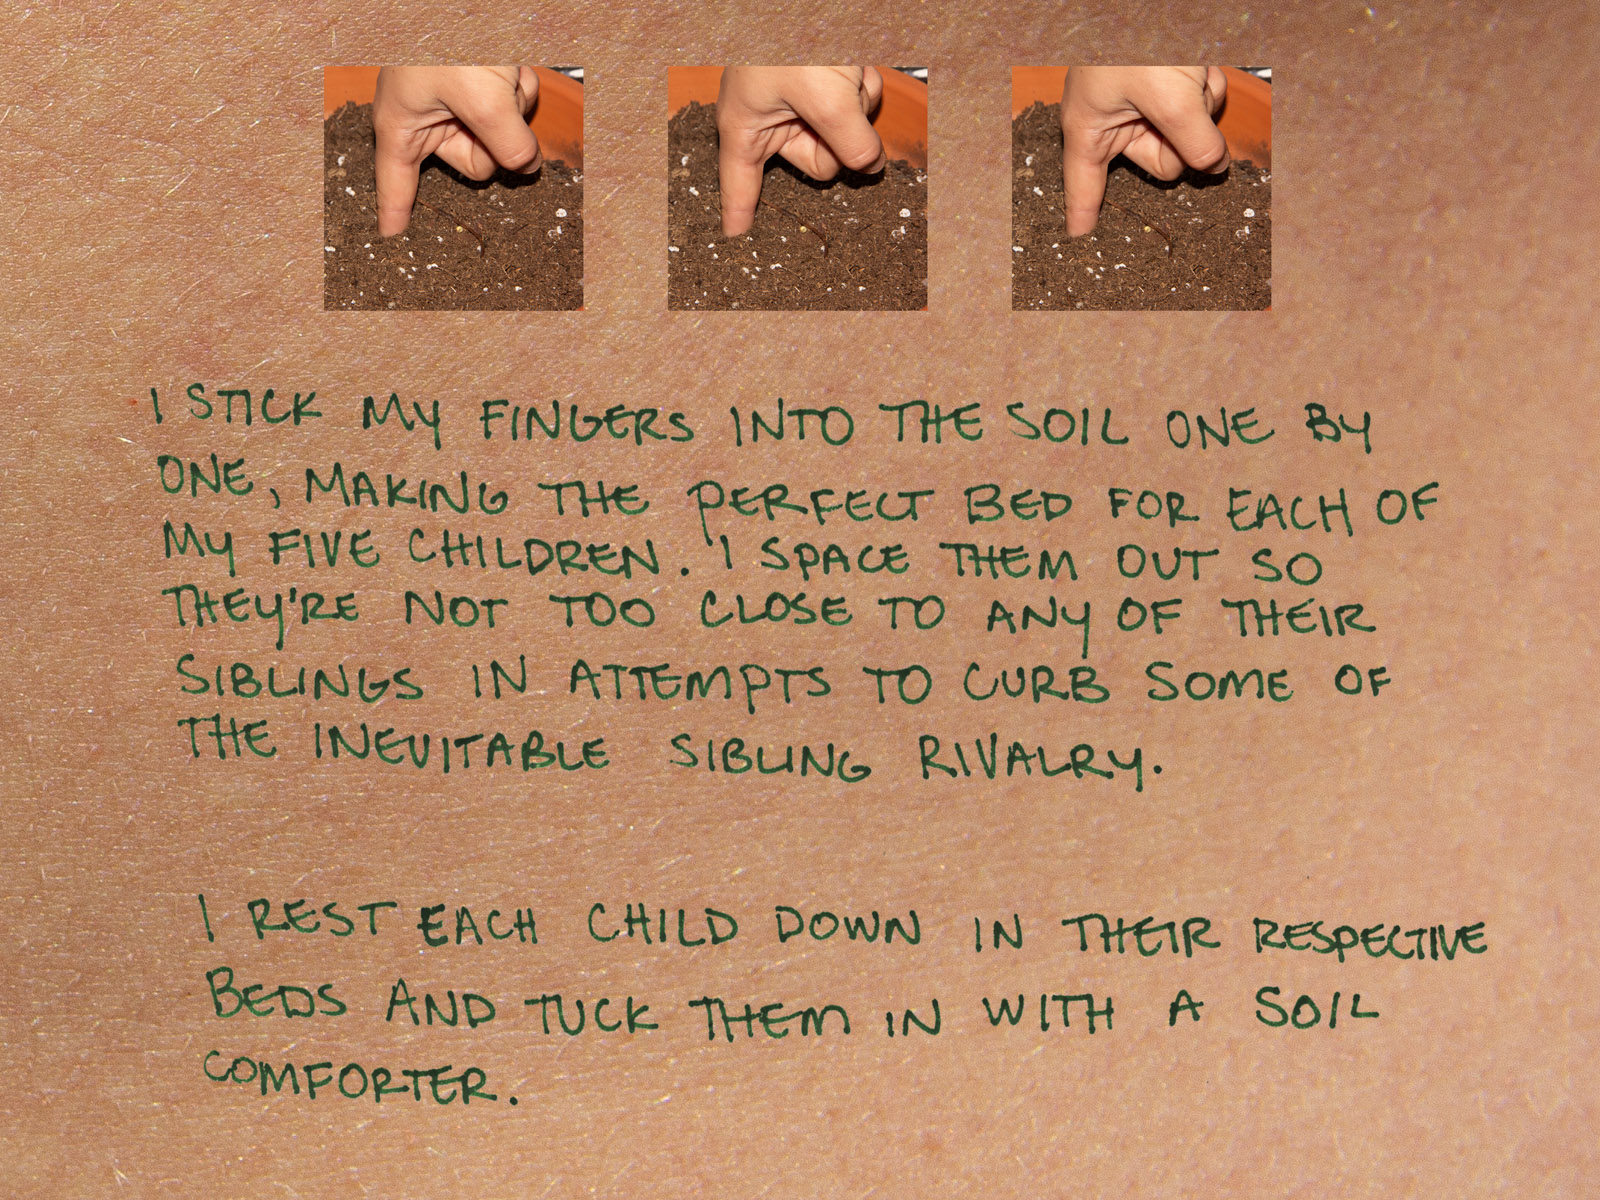 I STICK MY FINGERS INTO THE SOIL ONE BY
ONE, MAKING THE PERFECT BED FOR EACH OF
MY FIVE CHILDREN. I SPACE THEM OUT SO
THEY'RE NOT TOO CLOSE TO ANY OF THEIR
SIBLINGS IN ATTEMPTS TO CURB SOME OF
THE INEVITABLE SIBLING RIVALRY.
I REST EACH CHILD DOWN IN THEIR RESPECTIVE
BEDS AND TUCK THEM IN WITH A SOIL
COMFORTER.